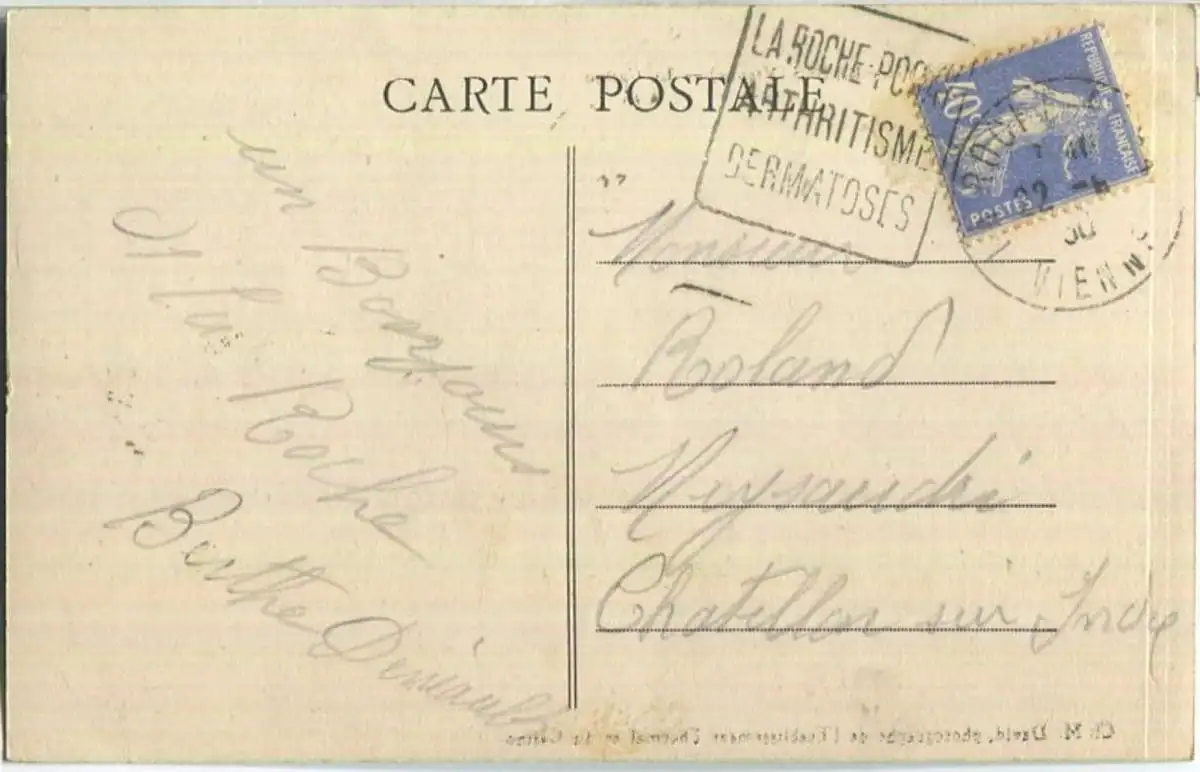 CARTE POSTALE
LA ROCHE-POSAY
ARTHRITISME
DERMATOSES
40c
REPUBLIQUE FRANCAISE
POSTES
22 -
30
VIENNE
un Bonjour
de La Roche
Berthe
Monsieur
Roland
Chatillon sur Indre
Ch. M. David, photographe de l'Etablissement Thermal et du Casino